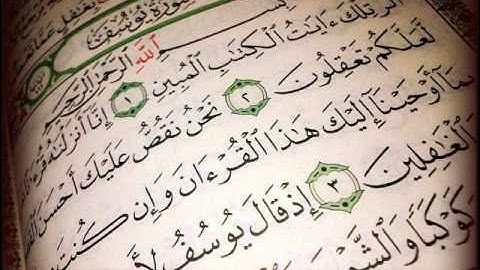 بِغَٰفِلٍ عَمَّا
سُورَةُ يُوسُفَ
بِسْمِ ٱللَّهِ ٱلرَّحْمَٰنِ ٱلرَّحِيمِ
الٓر تِلْكَ ءَايَٰتُ ٱلْكِتَٰبِ ٱلْمُبِينِ ١ إِنَّآ أَنزَلْنَٰهُ قُرْءَٰنًا
لَّعَلَّكُمْ تَعْقِلُونَ ٢ نَحْنُ نَقُصُّ عَلَيْكَ أَحْسَنَ
بِمَآ أَوْحَيْنَآ إِلَيْكَ هَٰذَا ٱلْقُرْءَانَ وَإِن كُنتَ
ٱلْغَٰفِلِينَ ٣ إِذْ قَالَ يُوسُفُ
كَوْكَبًا